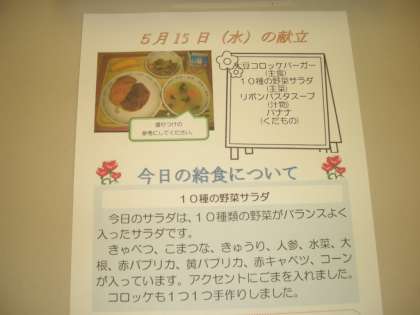 5月15日(水)の献立
大豆コロッケバーガー
(主食)
10種の野菜サラダ
(主菜)
リボンパスタスープ
(汁物)
バナナ
(くだもの)
盛りつけの
参考にしてください。
今日の給食について
10種の野菜サラダ
今日のサラダは、10種類の野菜がバランスよく
入ったサラダです。
きゃべつ、こまつな、きゅうり、人参、水菜、大
根、赤パプリカ、黄パプリカ、赤キャベツ、コーン
が入っています。アクセントにごまを入れました。
コロッケも1つ1つ手作りしました。